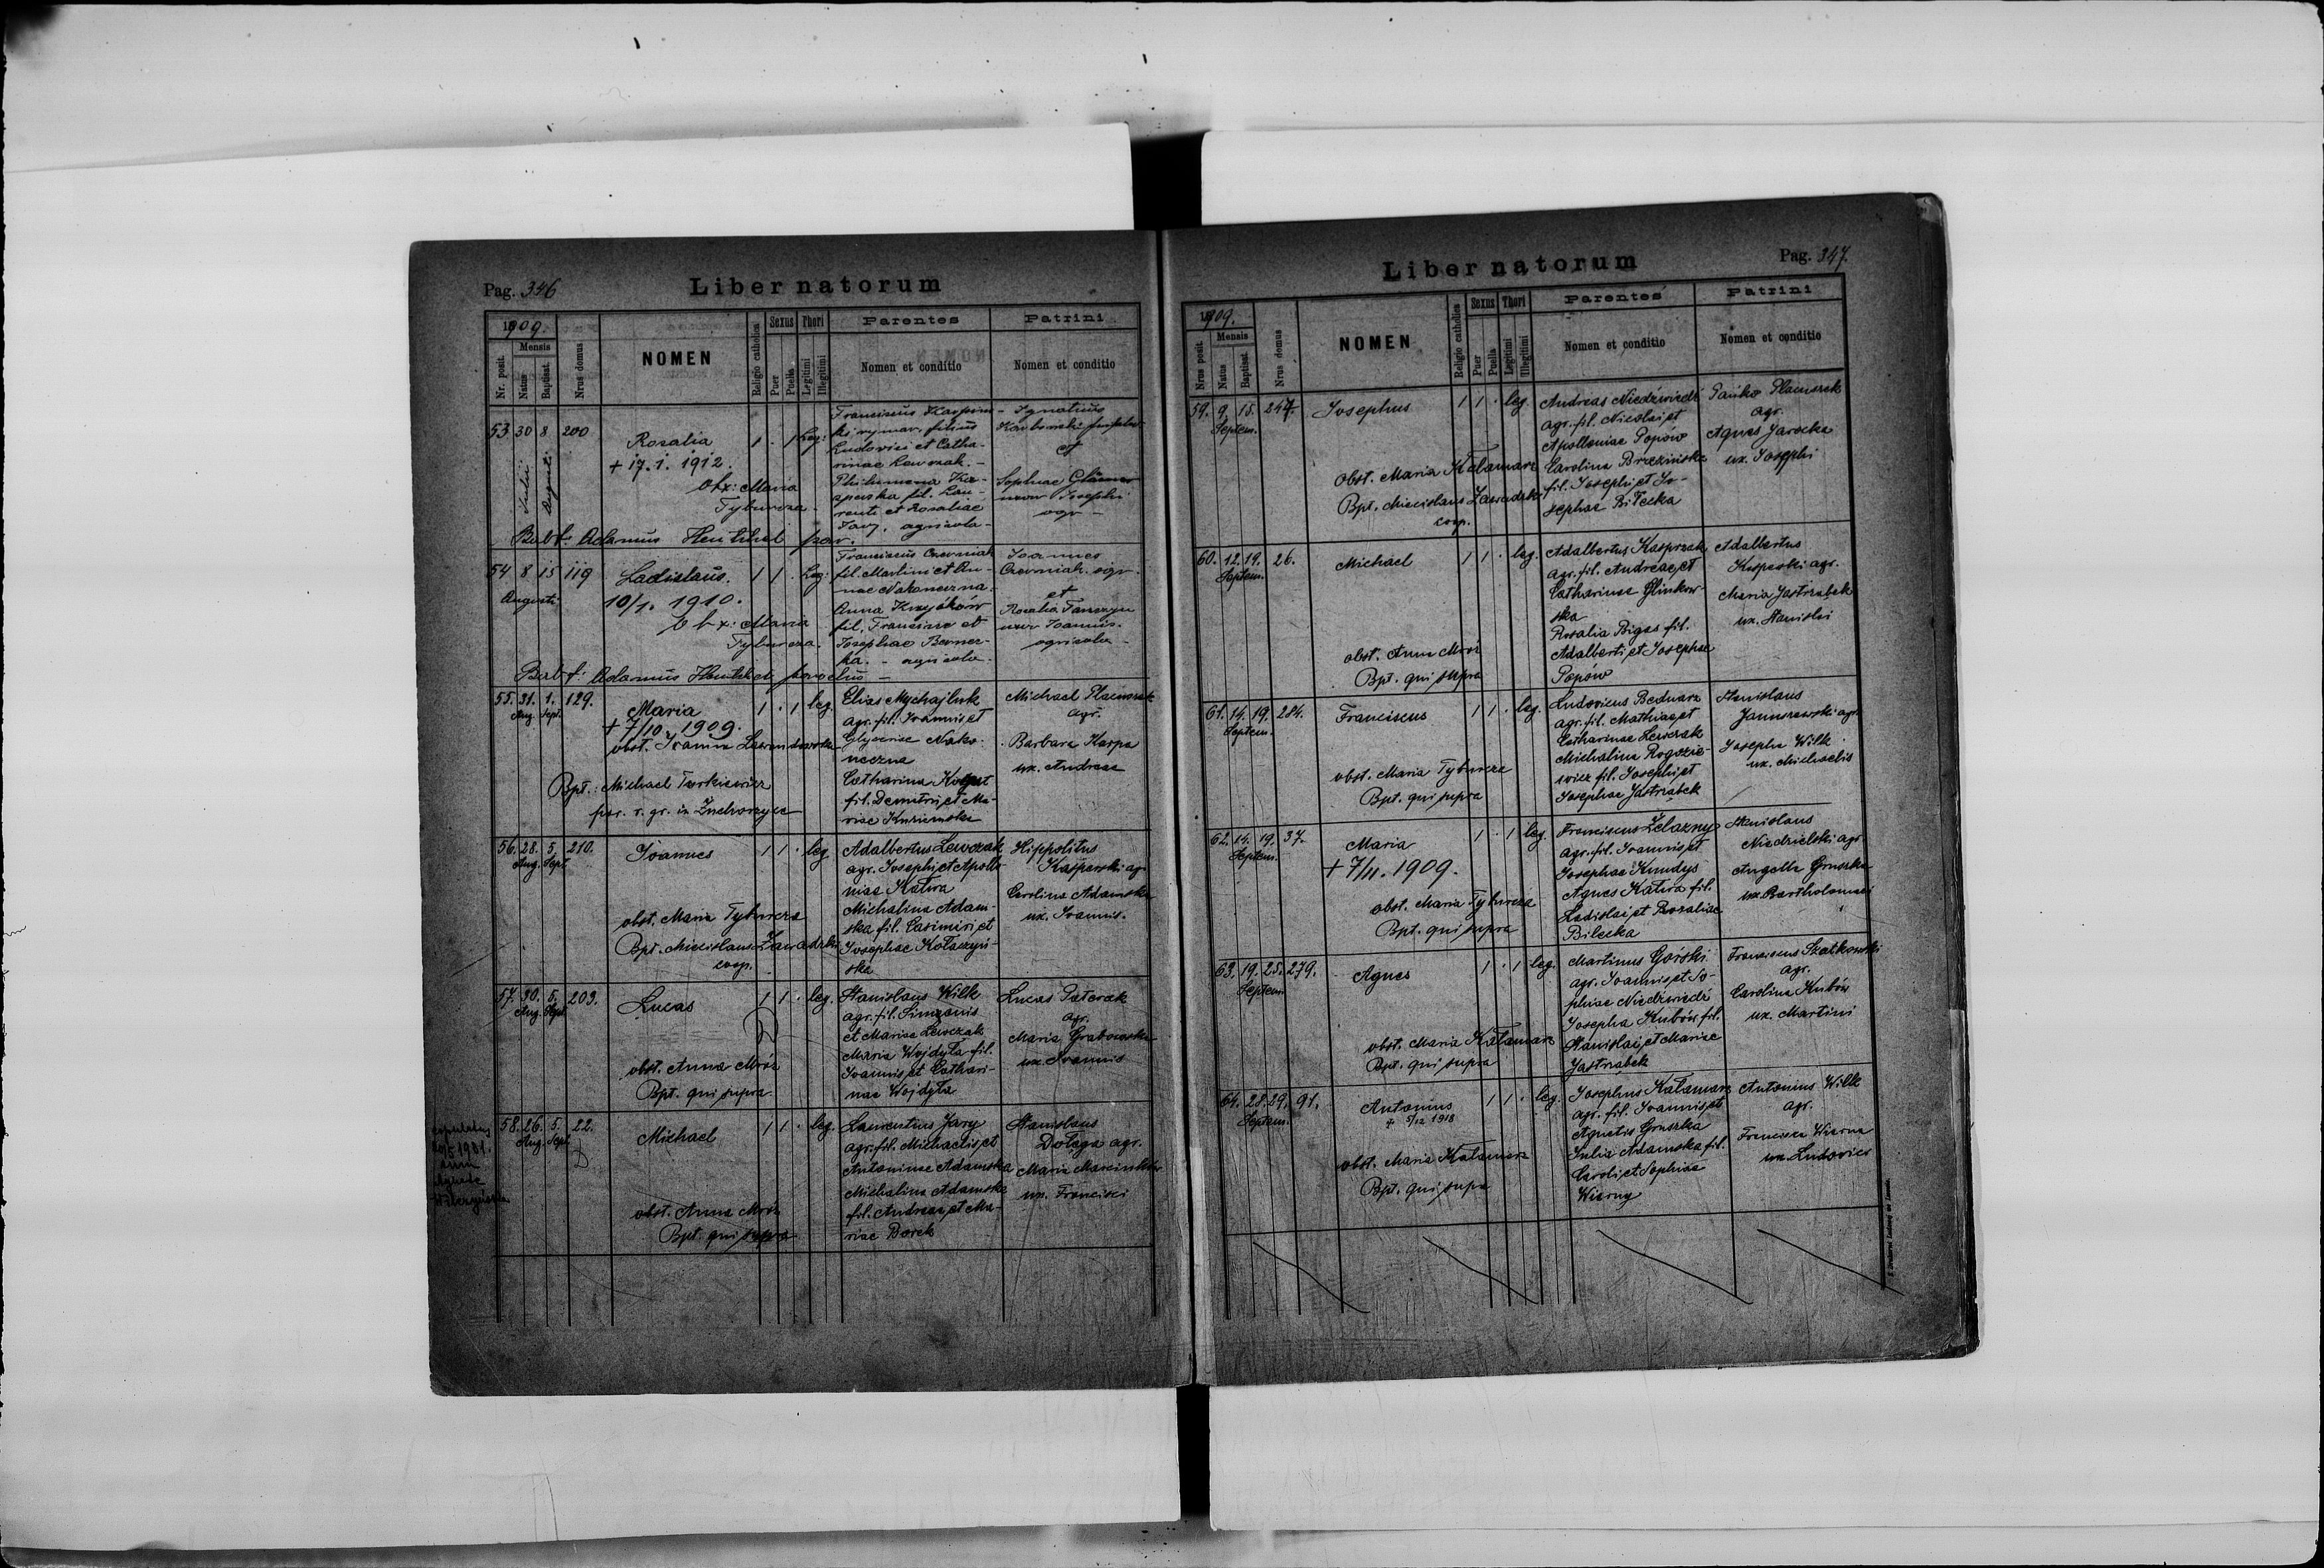 Pag. 346
Liber natorum
1909.
Mensis
Nr. posit.
Natus
Baptisat.
Nrus domus
NOMEN
Religio catholica
Sexus
Puer
Puella
Thori
Legitimi
Illegitimi
Parentes
Nomen et conditio
Patrini
Nomen et conditio
53 30 8 200
Julii Augusti
Rosalia
+ 17. 1. 1912.
Obx: Maria
Tyburcza
1 . 1 Leg:
Franciscus
filius
Ludovici et Catha-
rinae Lewczak. -
Philumena Ka-
sperska fil. Lau-
renti et Rosaliae
Jary, agricola -
Ignatius
et
Sophiae
uxor Josephi
agr -
Babt: Adamus Hentschel par.
54 8 15 119
Augusti
Ladislaus.
10/1. 1910.
Obx: Maria
Tyburcza.
1 1 . Leg:
Franciscus Czerniak
fil. Martini et An-
nae Nakoneczna -
Anna Krzyśków
fil. Francisci et
Josephae
ka. - agricola -
Joannes
Czerniak. agr -
et
Rosalia
uxor Joannis.
agricola -
Babt: Adamus Hentschel parochus -
55. 31. 1. 129.
Aug. Sept.
Maria
+ 7/10 1909.
obst. Joanna Lewandowska
Bpt.: Michael Turkiewicz
par. r. gr. in
1 . 1 leg.
Elias Mychajluk
agr. fil. Joannis et
Glyceriae Nako-
neczna
Catharina
fil. Demitri et Ma-
riae
Michael Placuszek
agr.
Barbara Karpa
ux. Andreae
56. 28. 5. 210.
Aug. Sept.
Joannes
obst. Maria Tyburcza
Bpt. Miecislaus Zawadzki
coop.
1 1 . leg.
Adalbertus Lewczak
agr. Josephi et Apollo
niae Katwa
Michalina Adam-
ska fil. Casimiri et
Josephae Kołaczyń-
ska
Hippolitus
Kasperski agr.
Carolina Adamska
ux. Joannis.
57. 30. 5. 203.
Aug. Sept.
Lucas
obst. Anna Mróz
Bpt. qui supra
1 1 . leg.
Stanislaus Wilk
agr. fil. Simeonis
et Mariae Lewczak
Maria Wojdyła fil.
Joannis et Cathari-
nae Wojdyła
Lucas Patczak
agr.
Maria Grabowska
ux. Joannis
58. 26. 5. 22.
Aug. Sept.
Michael
obst. Anna Mróz
Bpt. qui supra
1 1 . leg.
Laurentius Jary
agr. fil. Michaelis et
Antoninae Adamska
Michalina Adamska
fil. Andreae et Ma-
riae Borek
Stanislaus
Dołęga agr.
Maria Marcinków
ux. Francisci
Pag. 347.
Liber natorum
1909.
Mensis
Nrus posit.
Natus
Baptisat.
Nrus domus
NOMEN
Religio catholica
Sexus
Puer
Puella
Thori
Legitimi
Illegitimi
Parentes
Nomen et conditio
Patrini
Nomen et conditio
59. 9. 15. 247.
Septem.
Josephus
obst. Maria Kałamarz
Bpt. Miecislaus Zawadzki
coop.
1 1 . leg.
Andreas Niedźwiedź
agr. fil. Nicolai et
Apolloniae Popów
Carolina Brzezińska
fil. Josephi et Jo-
sephae Bilecka
Pańko Placuszek
agr.
Agnes Jarocka
ux. Josephi
60. 12. 19. 26.
Septem.
Michael
obst. Anna Mróz
Bpt. qui supra
1 1 . leg.
Adalbertus Kasprzak
agr. fil. Andreae et
Catharinae Glinkow
ska
Rosalia Bigas fil.
Adalberti et Josephae
Popów
Adalbertus
Kasperski agr.
Maria Jastrzabek
ux. Stanislai
61. 14. 19. 284.
Septem.
Franciscus
obst. Maria Tyburcza
Bpt. qui supra
1 1 . leg.
Ludovicus Bednarz
agr. fil. Mathiae et
Catharinae Lewczak
Michalina Rogozie-
wicz fil. Josephi et
Josephae Jastrzabek
Stanislaus
Januszewski agr.
Josepha Wilk
ux. Michaelis
62. 14. 19. 37.
Septem.
Maria
+ 7/11. 1909.
obst. Maria Tyburcza
Bpt. qui supra
1 . 1 leg.
Franciscus Żelazny
agr. fil. Joannis et
Josephae Kundys
Agnes Katwa fil.
Ladislai et Rosaliae
Bilecka
Stanislaus
Niedzielski agr.
Angella Gruszka
ux. Bartholomaei
63. 19. 25. 279.
Septem.
Agnes
obst. Maria Kałamarz
Bpt. qui supra
1 . 1 leg.
Martinus Górski
agr. Joannis et So-
phiae Niedźwiedź
Josepha Kubów fil.
Stanislai et Mariae
Jastrzabek
Franciscus Szatkowski
agr.
Carolina Kubów
ux. Martini
64. 28. 29. 91.
Septem.
Antonius
+ 5/12 1918
obst. Maria Kałamarz
Bpt. qui supra
1 1 . leg.
Josephus Kałamarz
agr. fil. Joannis et
Agnetis Gruszka
Julia Adamska fil.
Caroli et Sophiae
Wierny
Antonius Wilk
agr.
Francisca Wierna
ux. Ludovici